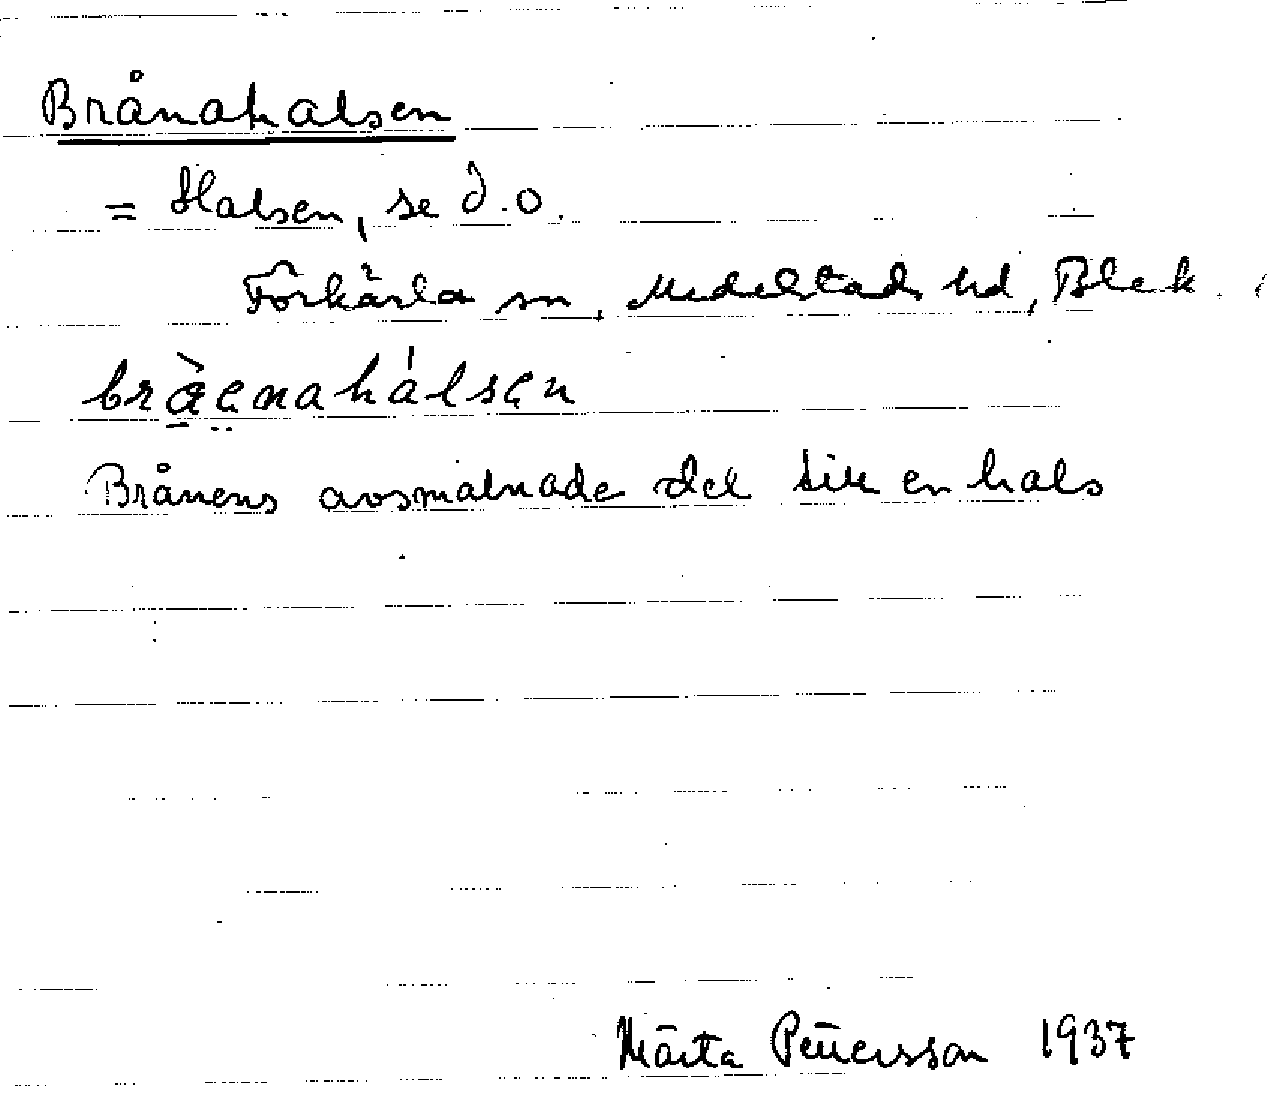 Brånahalsen
= Halsen, se d.o.
Förkärla sn, Medelstads hd, Blek.
bràenahálsen
Brånens avsmalnade del lik en hals
Märta Pettersson 1937